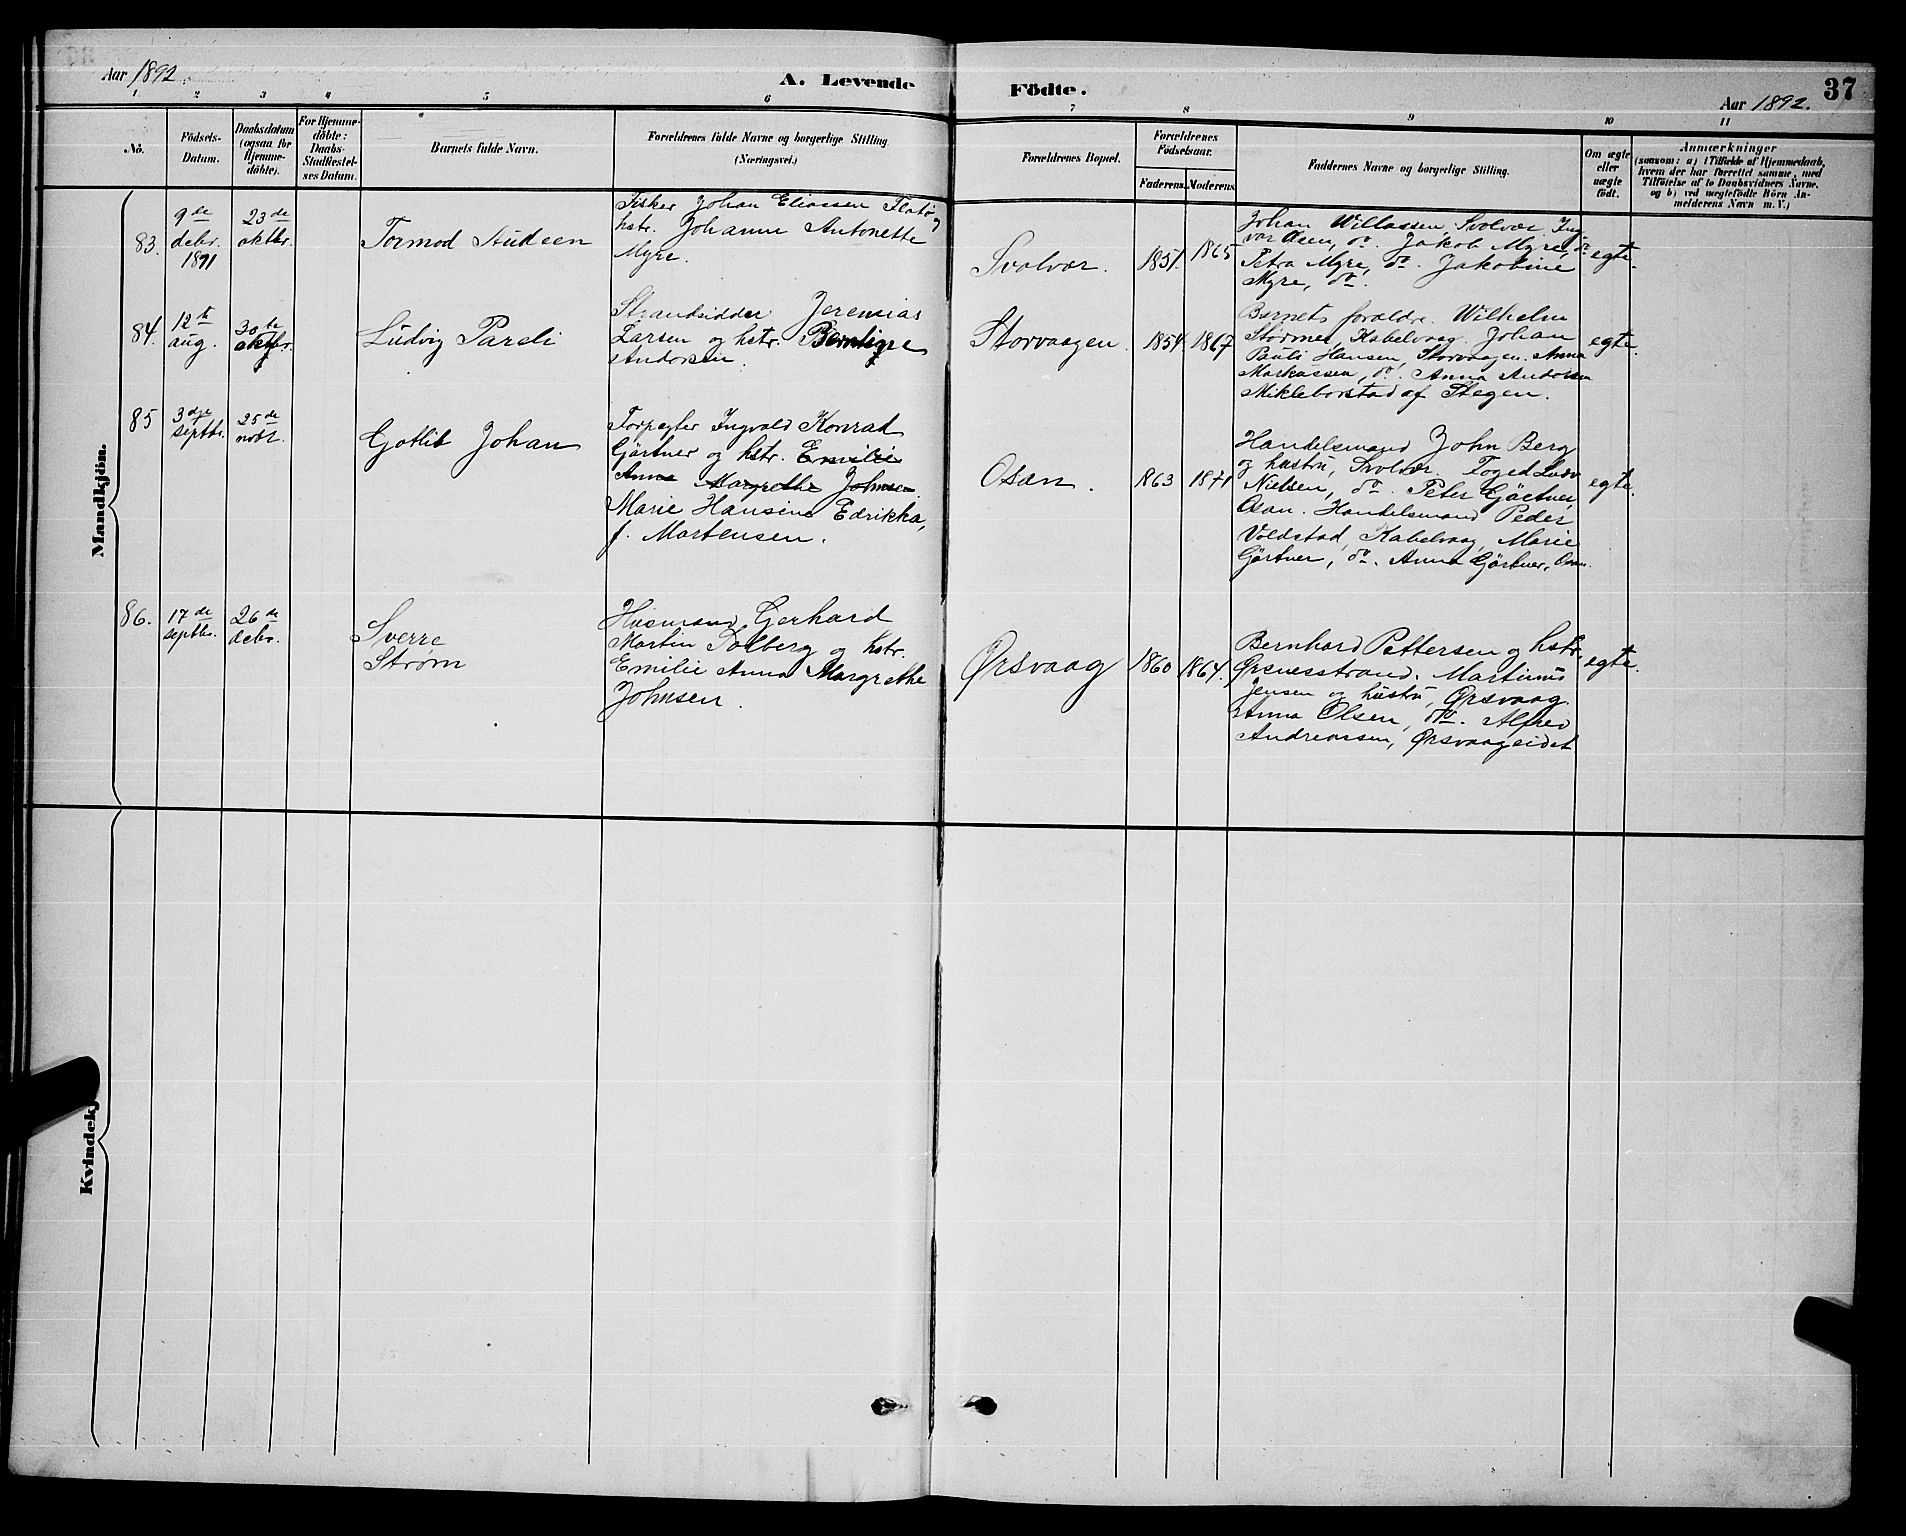 Aar 1892
A. Levende
Födte.
Aar 1892.
37
1
2
3
4
5
6
7
8
9
10
11
No.
Födsels-
Datum.
Daabsdatum
(ogsaa for
Hjemme-
döbte).
For Hjemme-
döbte:
Daabs-
Stadfæstel-
ses Datum.
Barnets fulde Navn.
Forældrenes fulde Navne og borgerlige Stilling
(Næringsvei.)
Forældrenes Bopæl.
Forældrenes
Födselsaar.
Faderens.
Moderens.
Faddernes Navne og borgerlige Stilling.
Om ægte
eller
uægte
födt.
Anmærkninger
(saasom: a) i Tilfælde af Hjemmedaab,
hvem der har forrettet samme, med
Tilföielse af to Daabsvidners Navne,
og b) ved uægtefödte Börn An-
melderens Navn m. V.)
Mandkjön.
83.
9de
debr.
1891
23de
oktbr.
Tormod
Fisker Johan Eliassen Flatø
hstr. Johanne Antonette
Myre.
Svolvær.
1851.
1865
Johan Willassen, Svolvær. Ing-
var Osen, do. Jakob Myre, do
Petra Myre, do. Jakobine
Myre, do.
egte.
84.
12te
aug.
30te
oktbr.
Ludvig Pareli
Strandsidder Jeremias
Larsen og hstr.
Andorsen.
Storvaagen.
1854
1867
Barnets forældre. Wilhelm
Størmer, Kabelvaag. Johan
Pauli Hansen, Storvaagen. Anna
Markussen, do. Anna Andorsen
Mikleborstad af Stegen.
egte.
85
3dje
septbr.
25de
nobr.
Gotlib Johan
Forpagter Ingvald Konrad
Gärtner og hstr. Emilie
Anna Margrethe Johnsen
Marie Hansine Edrikka,
f. Martensen.
Osan.
1863
1871
Handelsmand John Berg
og hustru, Svolvær. Foged Ludv
Nielsen, do. Peter Gärtner,
Osan. Handelsmand Peder
Voldstad, Kabelvaag, Marie
Gärtner, do. Anna Gärtner, Osan.
egte.
86.
17de
septbr.
26de
debr.
Sverre
Strøm
Husmand Gerhard
Martin Solberg og hstr.
Emilie Anna Margrethe
Johnsen.
Ørsvaag
1860
1864.
Bernhard Pettersen og hstr,
Ørsnesstrand. Martinus
Jensen og hustru, Ørsvaag.
Anna Olsen, do. Alfred
Andreassen, Ørsvaageidet
egte.
Kvindekj